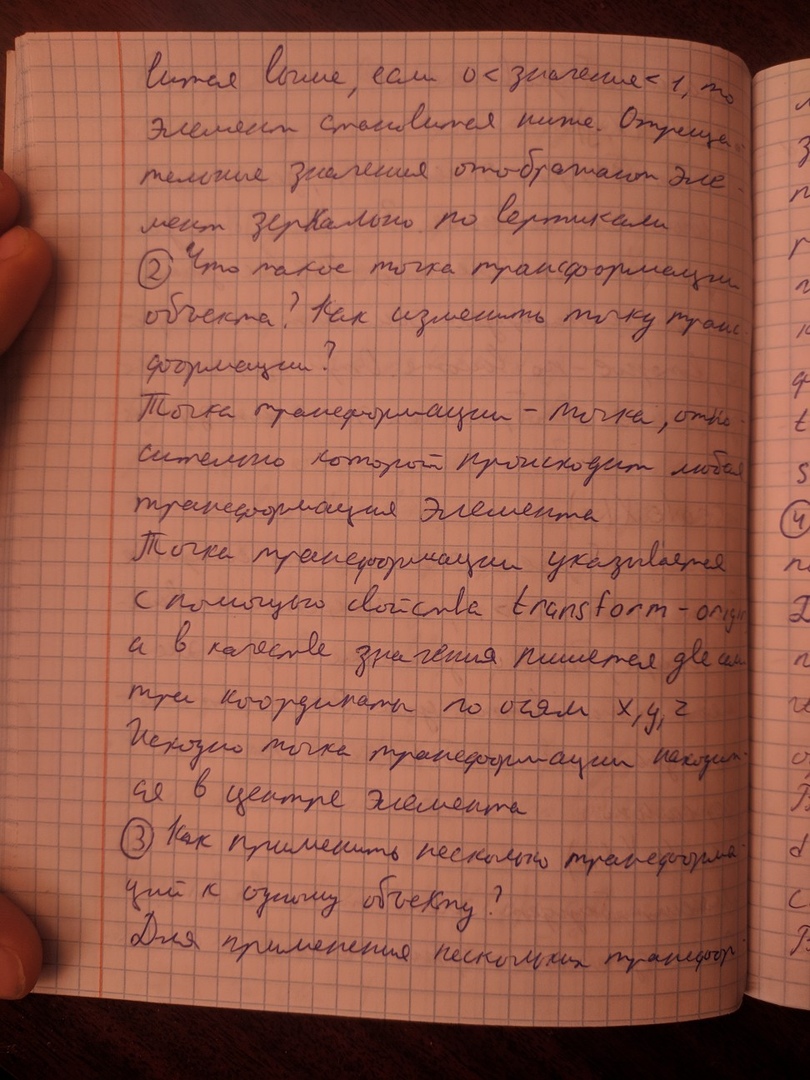 вится выше, если 0 < значение < 1, то
элемент становится ниже. Отрица-
тельные значения отображают эле-
мент зеркально по вертикали
② Что такое точка трансформации
объекта? Как изменить точку транс-
формации?
Точка трансформации - точка, отно-
сительно которой происходит любая
трансформация элемента
Точка трансформации указывается
с помощью свойства transform-origin
а в качестве значения пишется две или
три координаты по осям x, y, z
Исходно точка трансформации находит-
ся в центре элемента
③ Как применить несколько трансформа-
ций к одному объекту?
Для применения нескольких трансфор-
④